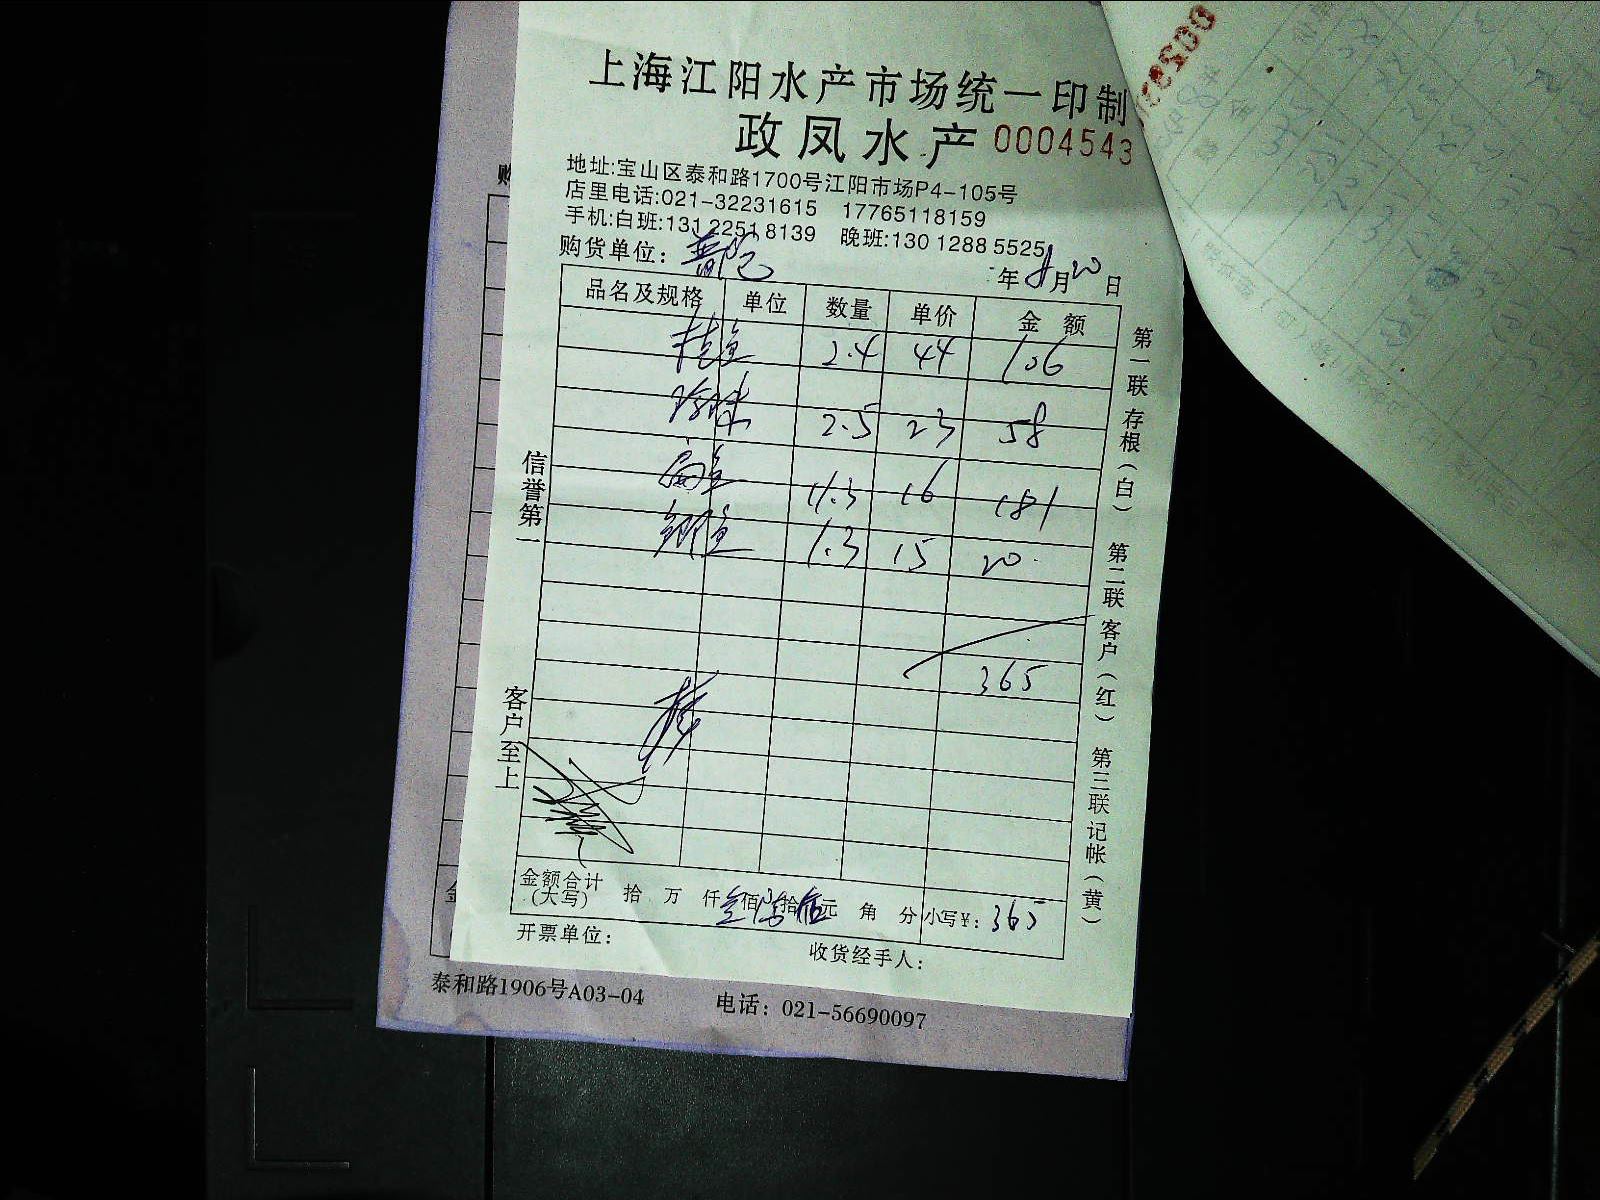 上海江阳水产市场统一印制
政凤水产 0004543
地址:宝山区泰和路1700号江阳市场P4-105号
店里电话:021-32231615 17765118159
手机:白班:131 2251 8139 晚班:130 1288 5525
购货单位:
年 8月20日
品名及规格 单位 数量 单价 金额
桂鱼 2.4 44 106
2.5 23 58
扁鱼 11.3 16 181
鲫鱼 1.3 15 20
365
金额合计
(大写) 拾 万 仟 佰 拾 元 角 分 小写¥: 365
开票单位: 收货经手人:
信誉第一
客户至上
第一联 存根(白) 第二联 客户(红) 第三联 记帐(黄)
泰和路1906号A03-04 电话: 021-56690097